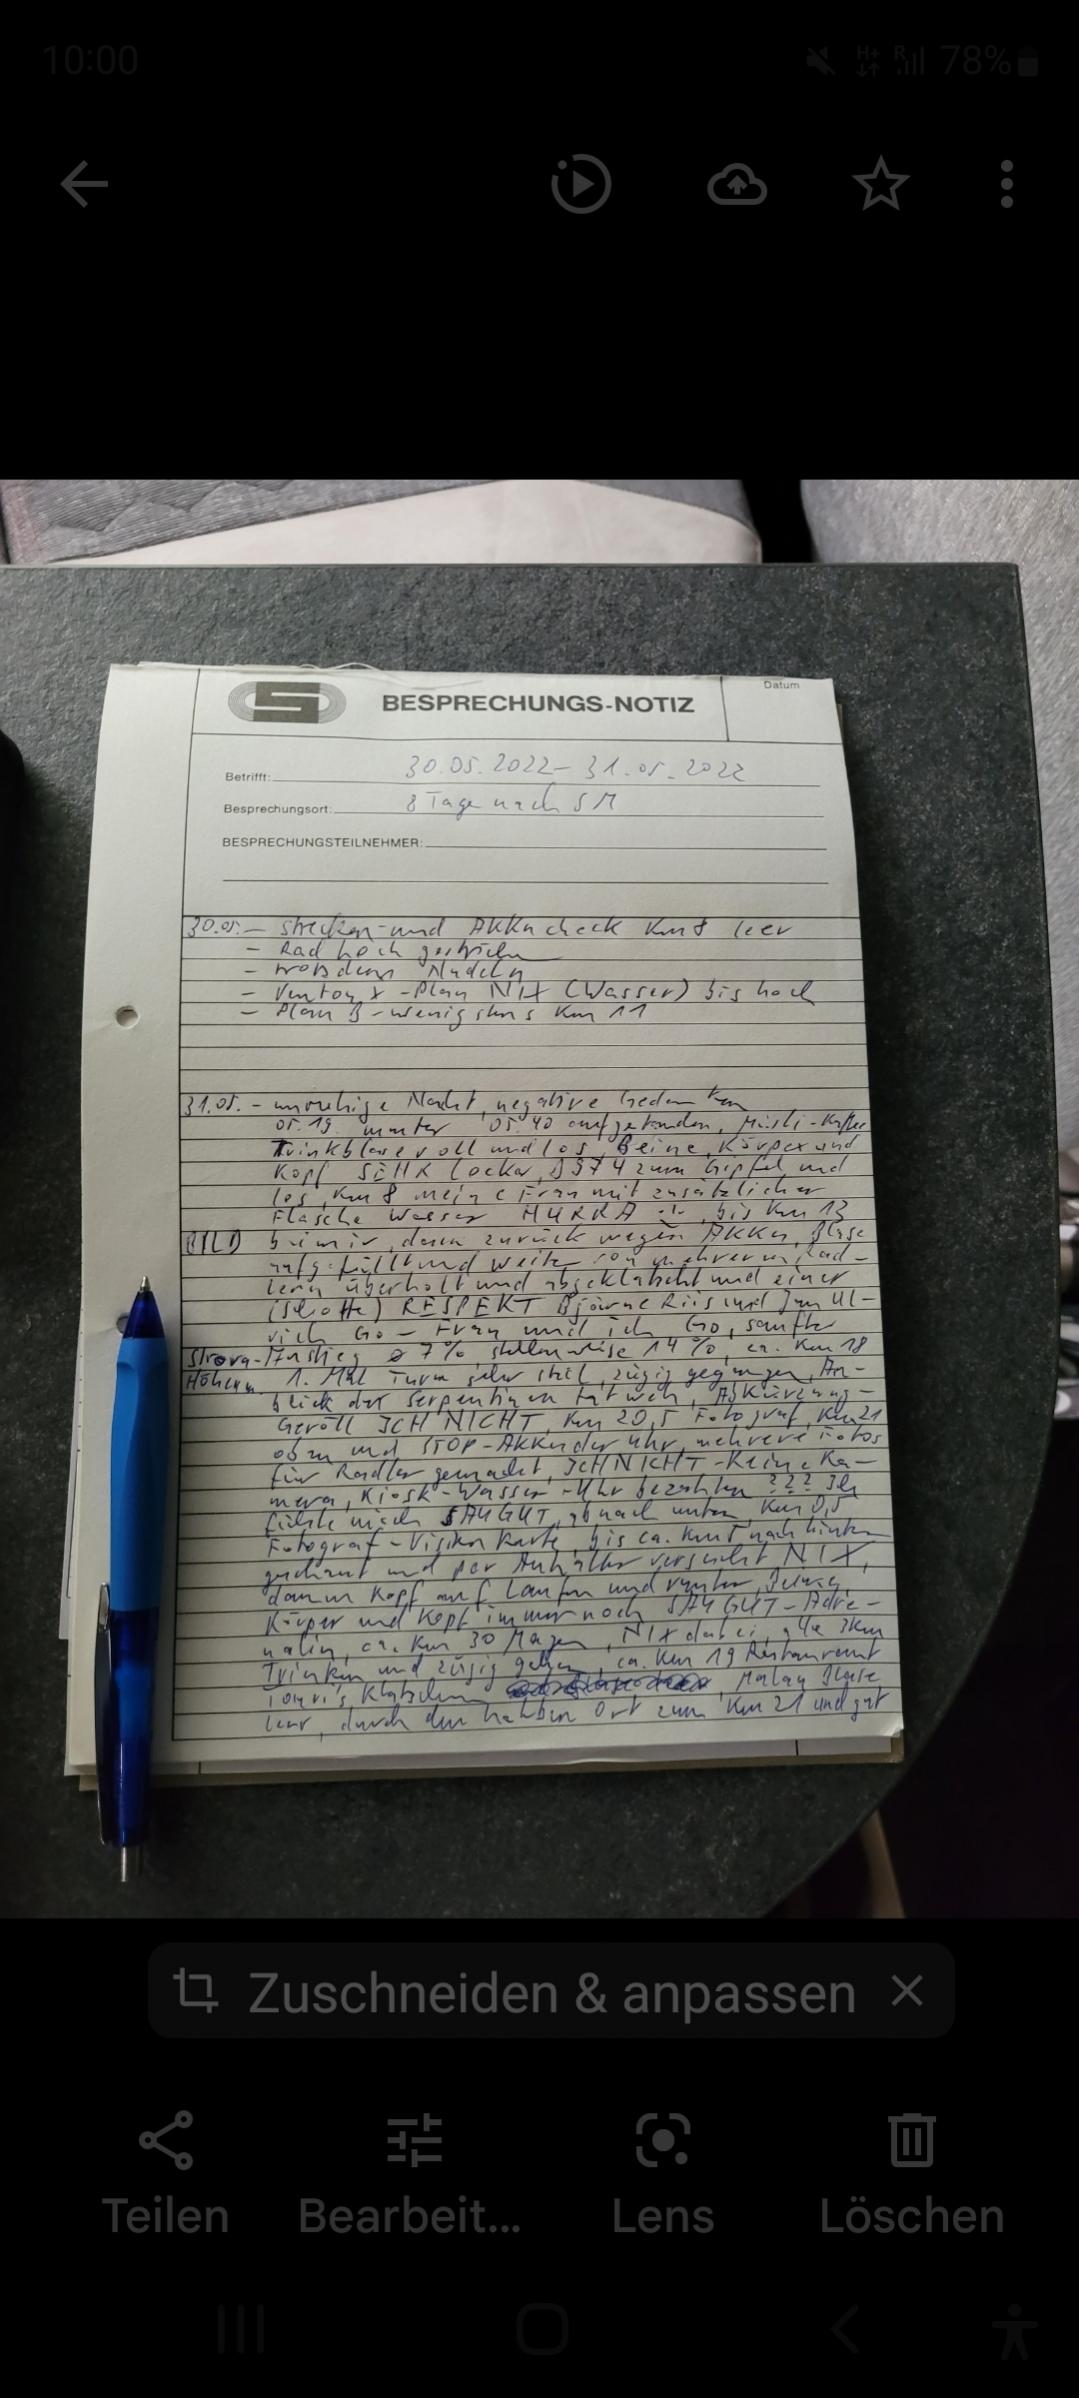 10:00 H+ R 78%
BESPRECHUNGS-NOTIZ
Datum
Betrifft: 30.05.2022 - 31.05.2022
Besprechungsort: 8 Tage nach SM
BESPRECHUNGSTEILNEHMER:
30.05. - Strecken- und Akkucheck Km 8 leer
- Rad hoch
- trotzdem Nudeln
- Ventoux - Plan NIX (Wasser) bis hoch
- Plan B - wenigstens Km 11
31.05. - unruhige Nacht, negative Gedanken
05.19. munter 05.40 aufgestanden, Müsli-Kaffee
Trinkblase voll und los, Beine, Körper und
Kopf SEHR locker, D974 zum Gipfel und
los, Km 8 meine Frau mit zusätzlicher
Flasche Wasser HURRA bis Km 13
BILD bei mir, dann zurück wegen Akku, Blase
aufgefüllt und weiter von mehreren Rad-
lern überholt und abgeklatscht und einer
(Schotte) RESPEKT Bjarne Riis und Jan Ul-
rich Go - Frau und ich Go, sanfter
Strava- Anstieg ø 7%, stellenweise 14%, ca. Km 18
Höhenm. 1. Mal Turm sehr steil, zügig gegangen, An-
blick der Serpentinen tat weh, Abkürzung -
Geröll ICH NICHT, Km 20,5 Fotograf, Km 21
oben und STOP-Akku der Uhr, mehrere Fotos
für Radler gemacht, ICH NICHT - keine Ka-
mera, Kiosk-Wasser - Uhr bezahlen ??? Ich
fühlte mich SAUGUT, ab nach unten, Km 0,5
Fotograf - Visitenkarte, bis ca. Km 5 nach hinten
geschaut und per Anhalter versucht NIX,
dann Kopf auf Laufen und runter, Beine,
Körper und Kopf immer noch SAUGUT - Adre-
nalin, ca. Km 30 Magen, NIX dabei, alle 3km
Trinken und zügig gehen, ca. Km 19 Restaurant
Touri's klatschen Blase
leer, durch den halben Ort zum Km 21 und gut
Zuschneiden & anpassen
Teilen Bearbeit... Lens Löschen